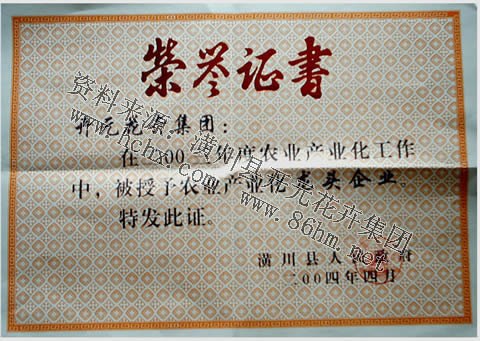 榮誉证书
元花卉集团：
在200 年度农业产业化工作
中，被授予农业产业化龙头企业。
特发此证。
潢川县人民政府
二00四年四月
资料来源：潢川县 元花卉集团
www.86hm.net